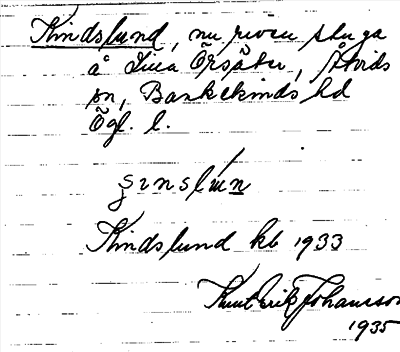 Kindslund, nu riven stuga
å Lilla Örsäter, Åtvids
sn, Bankekinds hd
Ögl. l.
Kindslund kb 1933
Knut Erik Johansson
1935